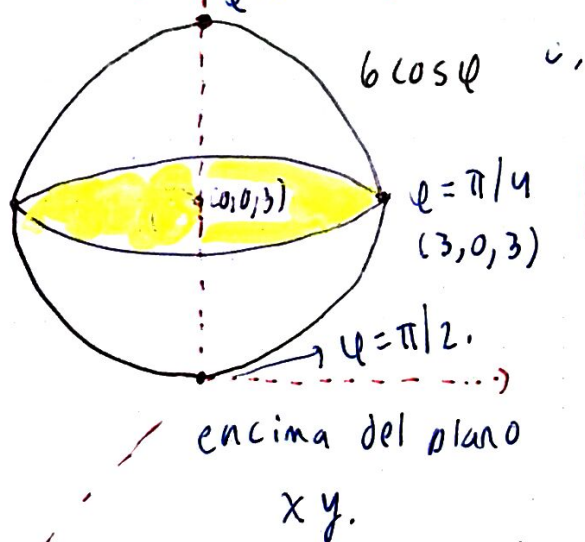 6 cos φ
(0,0,3)
φ = π/4
(3,0,3)
φ = π/2.
encima del plano
x y.